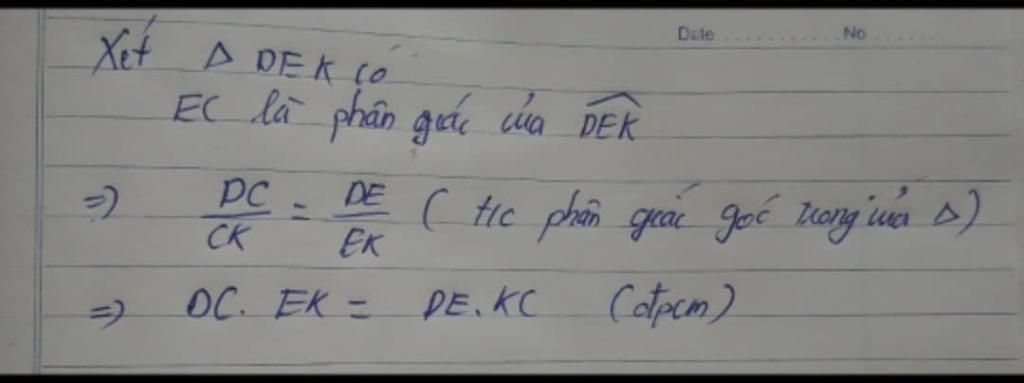 Date ........... No ........
Xét Δ DEK có
EC là phân giác của \widehat{DEK}
=> \frac{DC}{CK} = \frac{DE}{EK} ( t/c phân giác góc trong của Δ)
=> DC. EK = DE. KC (đpcm)